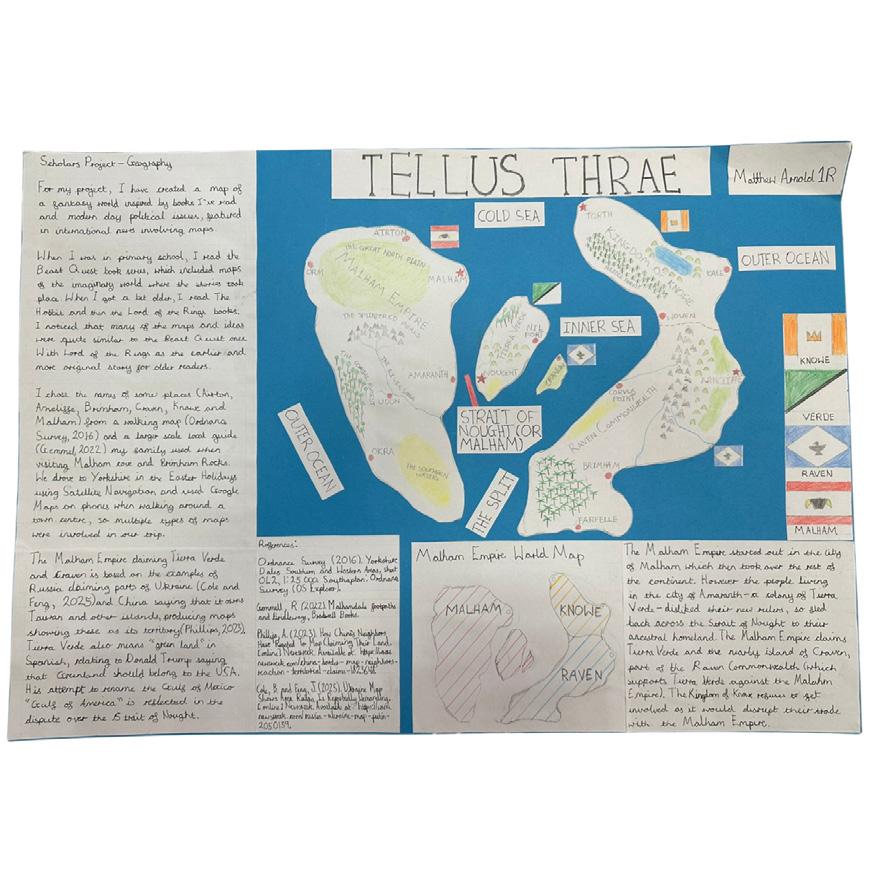 Scholars Project - Geography
For my project, I have created a map of
a fantasy world inspired by books I've read
and modern day political issues, featured
in international news involving maps.
When I was in primary school, I read the
Beast Quest book series, which included maps
of the imaginary world where the stories took
place. When I got a bit older, I read The
Hobbit and then the Lord of the Rings books.
I noticed that many of the maps and ideas
were quite similar to the Beast Quest ones
With Lord of the Rings as the earlier and
more original story for older readers.
I chose the name of some places (Airton,
Arncliffe, Brimham, Craven, Knowe and
Malham) from a walking map (Ordnance
Survey, 2016) and a large scale local guide
(Gemmel, 2022) my family used when
visiting Malham cove and Brimham Rocks.
We drove to Yorkshire in the Easter Holidays
using Satellite Navigation and used Google
Maps on phones when walking around a
town centre, so multiple types of maps
were involved in our trip.
The Malham Empire claiming Tierra Verde
and Craven is based on the examples of
Russia claiming parts of Ukraine (Cole and
Feng, 2025) and China saying that it owns
Taiwan and other islands, producing maps
showing these as its territory (Phillips, 2023).
Tierra Verde also means "green land" in
Spanish, relating to Donald Trump saying
that Greenland should belong to the USA.
His attempt to rename the Gulf of Mexico
"Gulf of America" is reflected in the
dispute over the Strait of Nought.
TELLUS THRAE
Matthew Arnold 1R
COLD SEA
OUTER OCEAN
INNER SEA
OUTER OCEAN
STRAIT OF
NOUGHT (OR
MALHAM)
THE SPLIT
AIRTON
THE GREAT NORTH PLAIN
ORM
MALHAM
MALHAM EMPIRE
THE SPLINTERED PEAKS
AMARANTH
UDON
OKRA
THE SOUTHERN
TIERRA VERDE
NIL
PORT
NOUGHT
CRAVEN
TORTH
KINGDOM OF KNOWE
KALE
JOVEN
ARNCLIFFE
CORVUS
POINT
RAVEN COMMONWEALTH
BRIMHAM
FARFELLE
KNOWE
VERDE
RAVEN
MALHAM
References:
Ordnance Survey (2016). Yorkshire
Dales Southern and Western Areas,
OL2, 1:25 000. Southampton: Ordnance
Survey (OS Explorer).
Gemmell, R (2022). Malhamdale footpaths
and Bradwell Books.
Phillips, A (2023). How China's Neighbors
Have Reacted To Map Claiming Their Land.
[online] Newsweek. Available at: https://www.
newsweek.com/china-border-map-neighbors-
reaction-territorial-claims-
Cole, B and Feng, J (2025). Ukraine Map
Shows Area Russia Is Reportedly Demanding.
[online] Newsweek. Available at: https://www.
newsweek.com/russia-ukraine-map-putin-
2050159.
Malham Empire World Map
MALHAM
KNOWE
RAVEN
The Malham Empire started out in the city
of Malham which then took over the rest of
the continent. However the people living
in the city of Amaranth - a colony of Tierra
Verde - disliked their new rulers, so fled
back across the Strait of Nought to their
ancestral homeland. The Malham Empire claims
Tierra Verde and the nearby island of Craven,
part of the Raven Commonwealth (which
supports Tierra Verde against the Malahm
Empire). The Kingdom of Knox refuses to get
involved as it would disrupt their trade
with the Malham Empire.